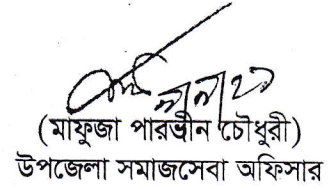 (মাফুজা পারভীন চৌধুরী)
উপজেলা সমাজসেবা অফিসার